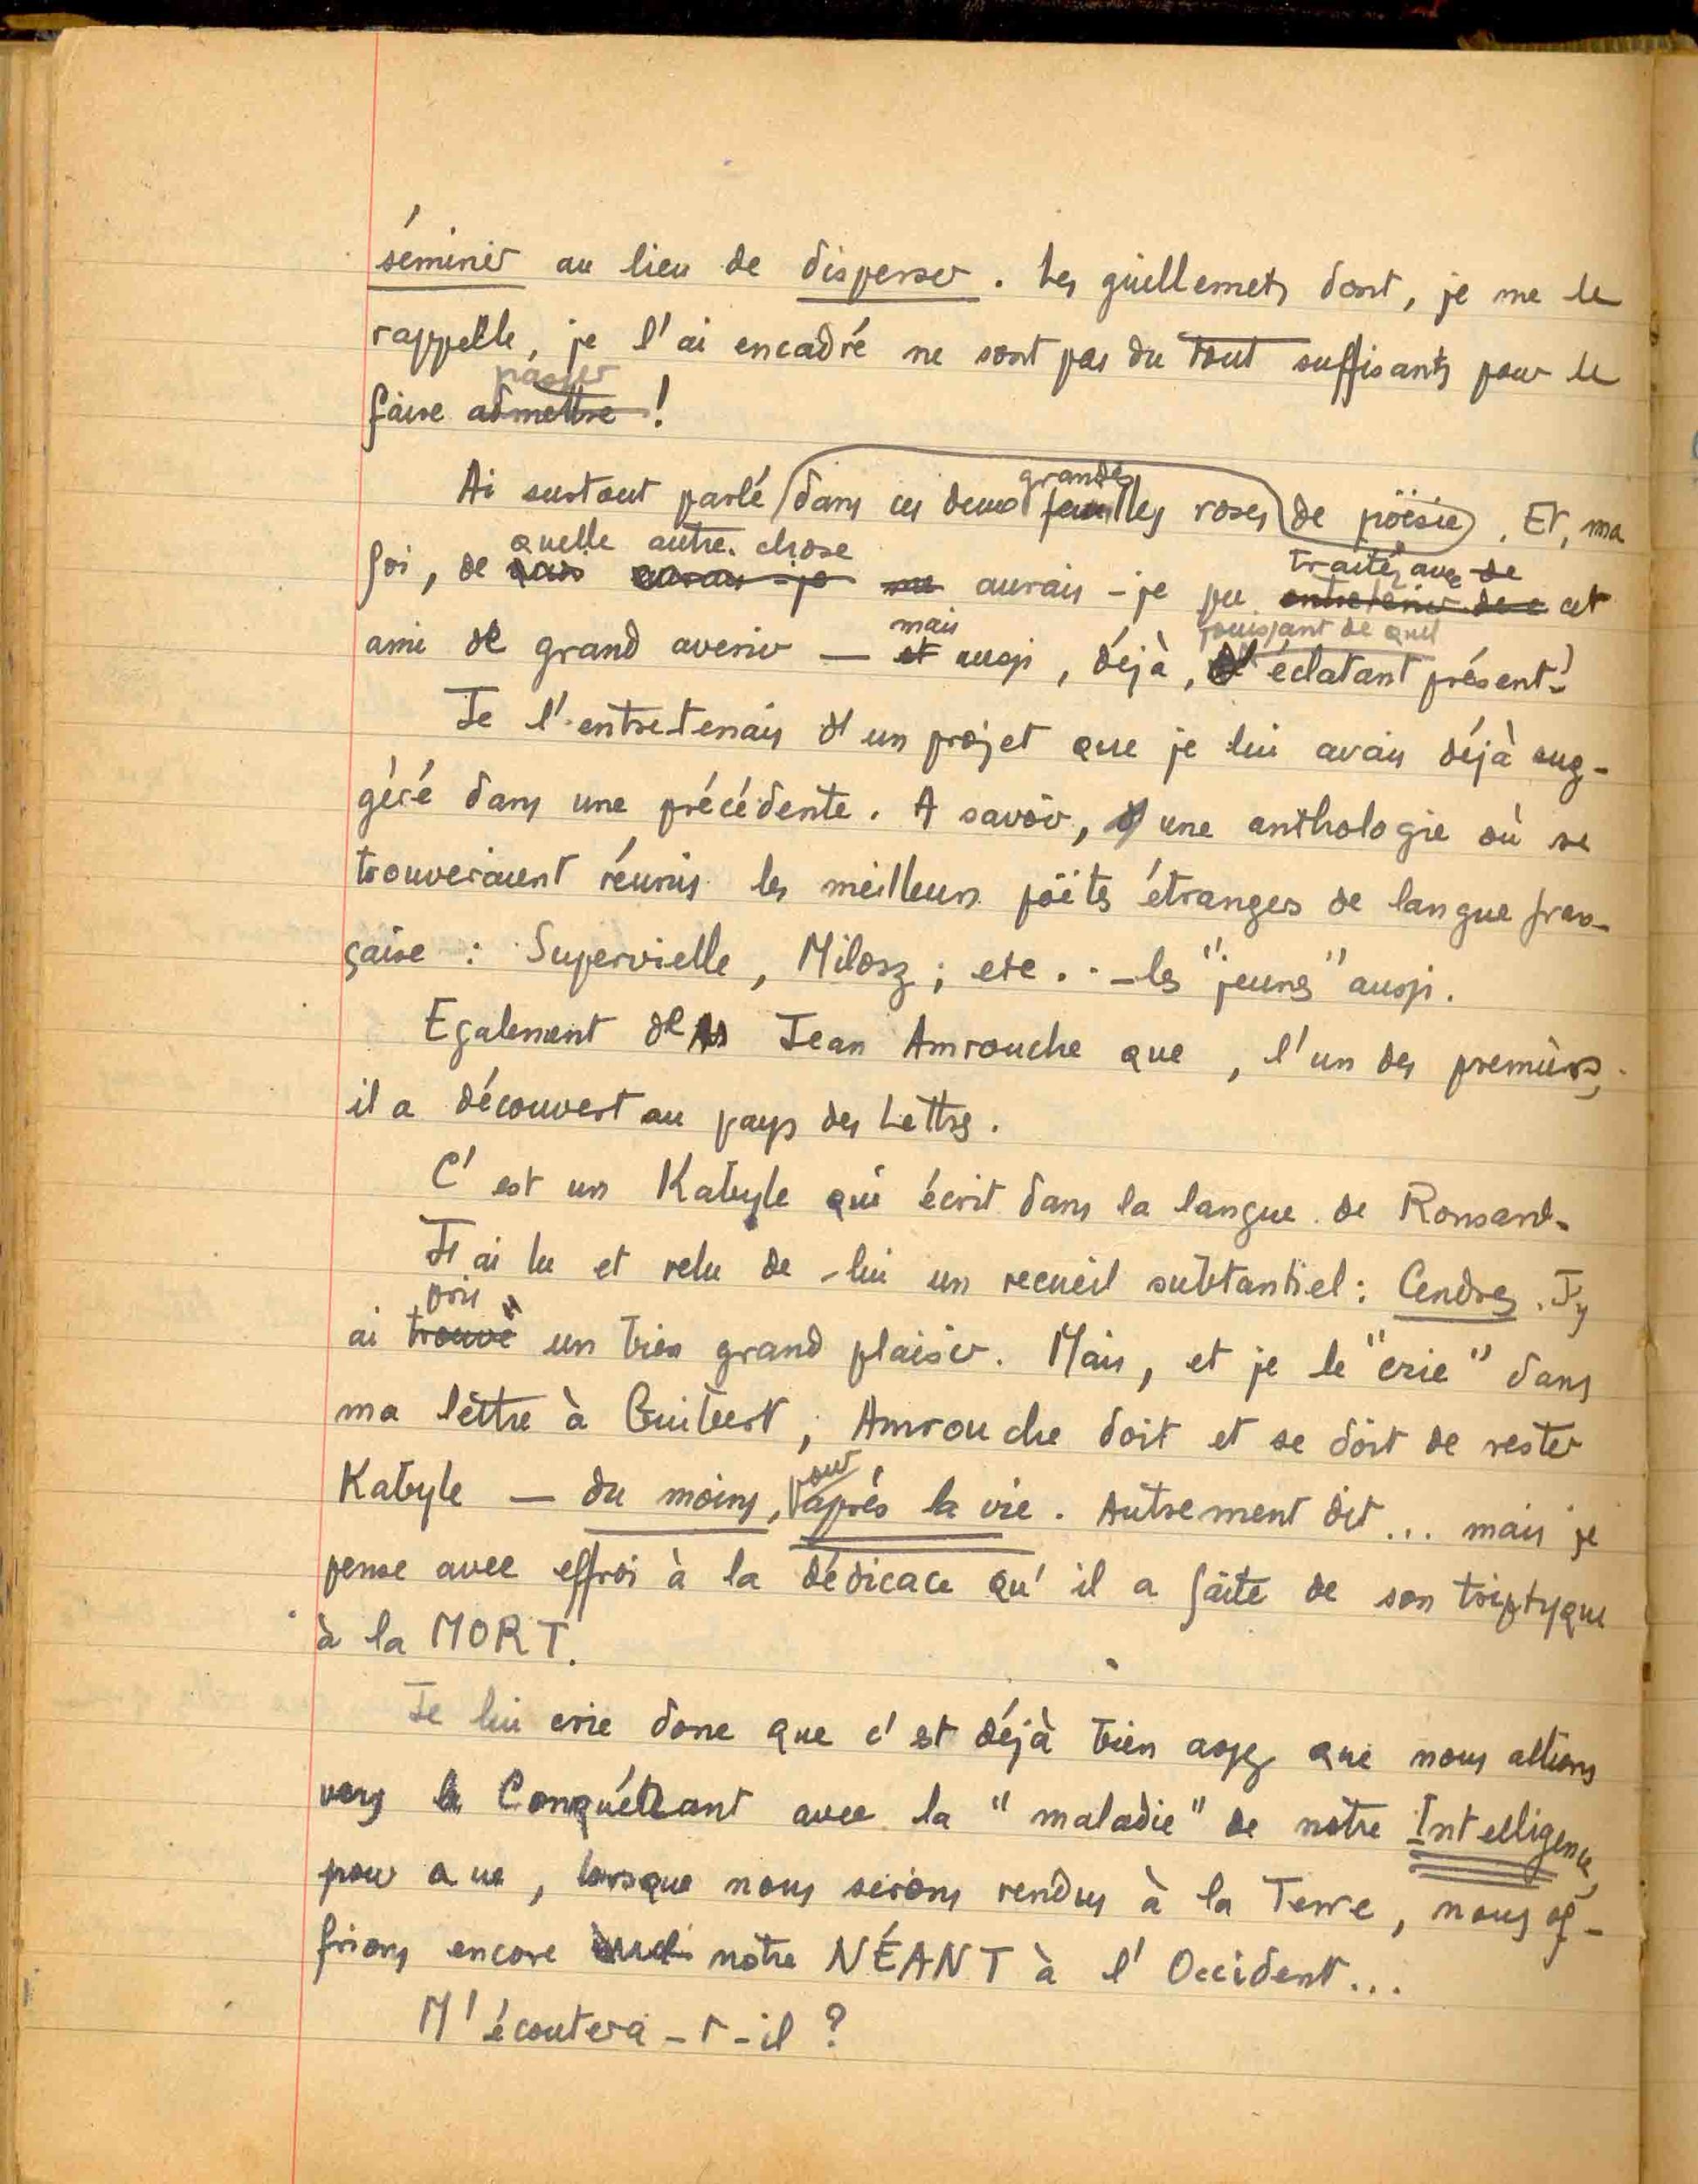 séminer au lieu de disperser. Les guillemets dont, je me le
rappelle, je l'ai encadré ne sont pas du tout suffisants pour le
passer
faire admettre !
grandes
Ai surtout parlé dans ces deux feuilles roses de poësie. Et, ma
quelle autre chose
traiter avec de
foi, de quoi aurais-je aurais-je pu entretenir de cet
mais
jouissant de quel
ami de grand avenir — et aussi, déjà, d' éclatant présent?
Je l'entretenais d'un projet que je lui avais déjà sug-
géré dans une précédente. A savoir, d'une anthologie où se
trouveraient réunis les meilleurs poëtes étrangers de langue fran-
çaise : Supervielle, Milosz ; etc.. – les "jeunes" aussi.
Egalement de Jean Amrouche que, l'un des premiers,
il a découvert au pays des Lettres.
C'est un Kabyle qui écrit dans la langue de Ronsard.
J'ai lu et relu de lui un recueil substantiel : Cendres. J'y
pris
ai trouvé un bien grand plaisir. Mais, et je le "crie" dans
ma lettre à Guibert, Amrouche doit et se doit de rester
pour
Kabyle — du moins, après la vie. Autrement dit... mais je
pense avec effroi à la dédicace qu'il a faite de son triptyque
à la MORT.
Je lui crie donc que c'est déjà bien assez que nous allions
vers le Conquérant avec la "maladie" de notre Intelligence,
pour que, lorsque nous serons rendus à la Terre, nous of-
frions encore notre NÉANT à l'Occident...
M'écoutera-t-il ?